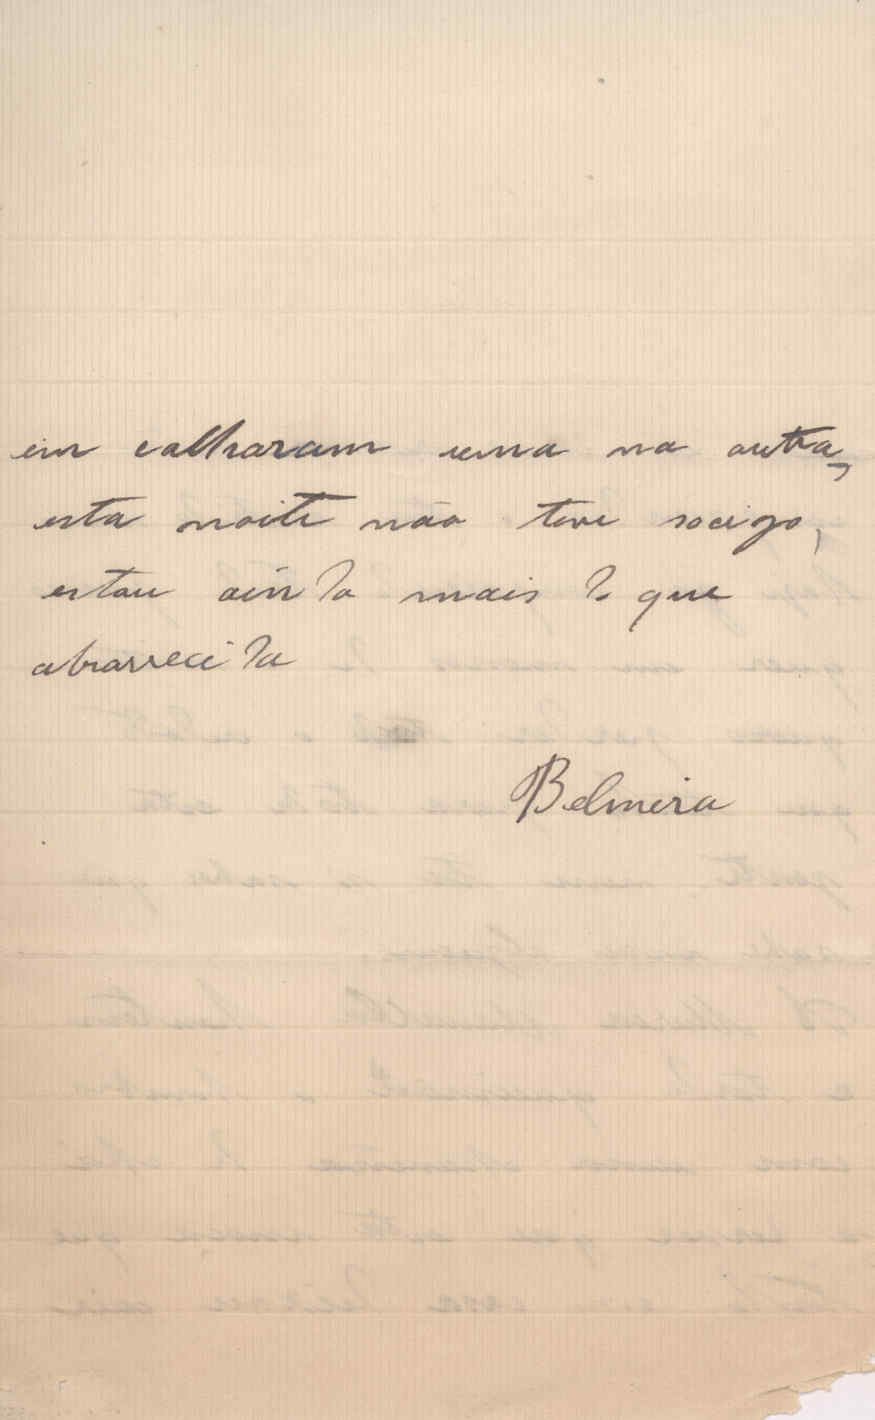 em calharam uma na outra,
esta noite não teve socigo,
estou ainda mais do que
aborrecida
Belmira